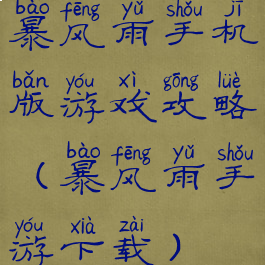 bào fēng yǔ shǒu jī
暴风雨手机
bǎn yóu xì gōng lüè
版游戏攻略
bào fēng yǔ shǒu
（暴风雨手
yóu xià zài
游下载）